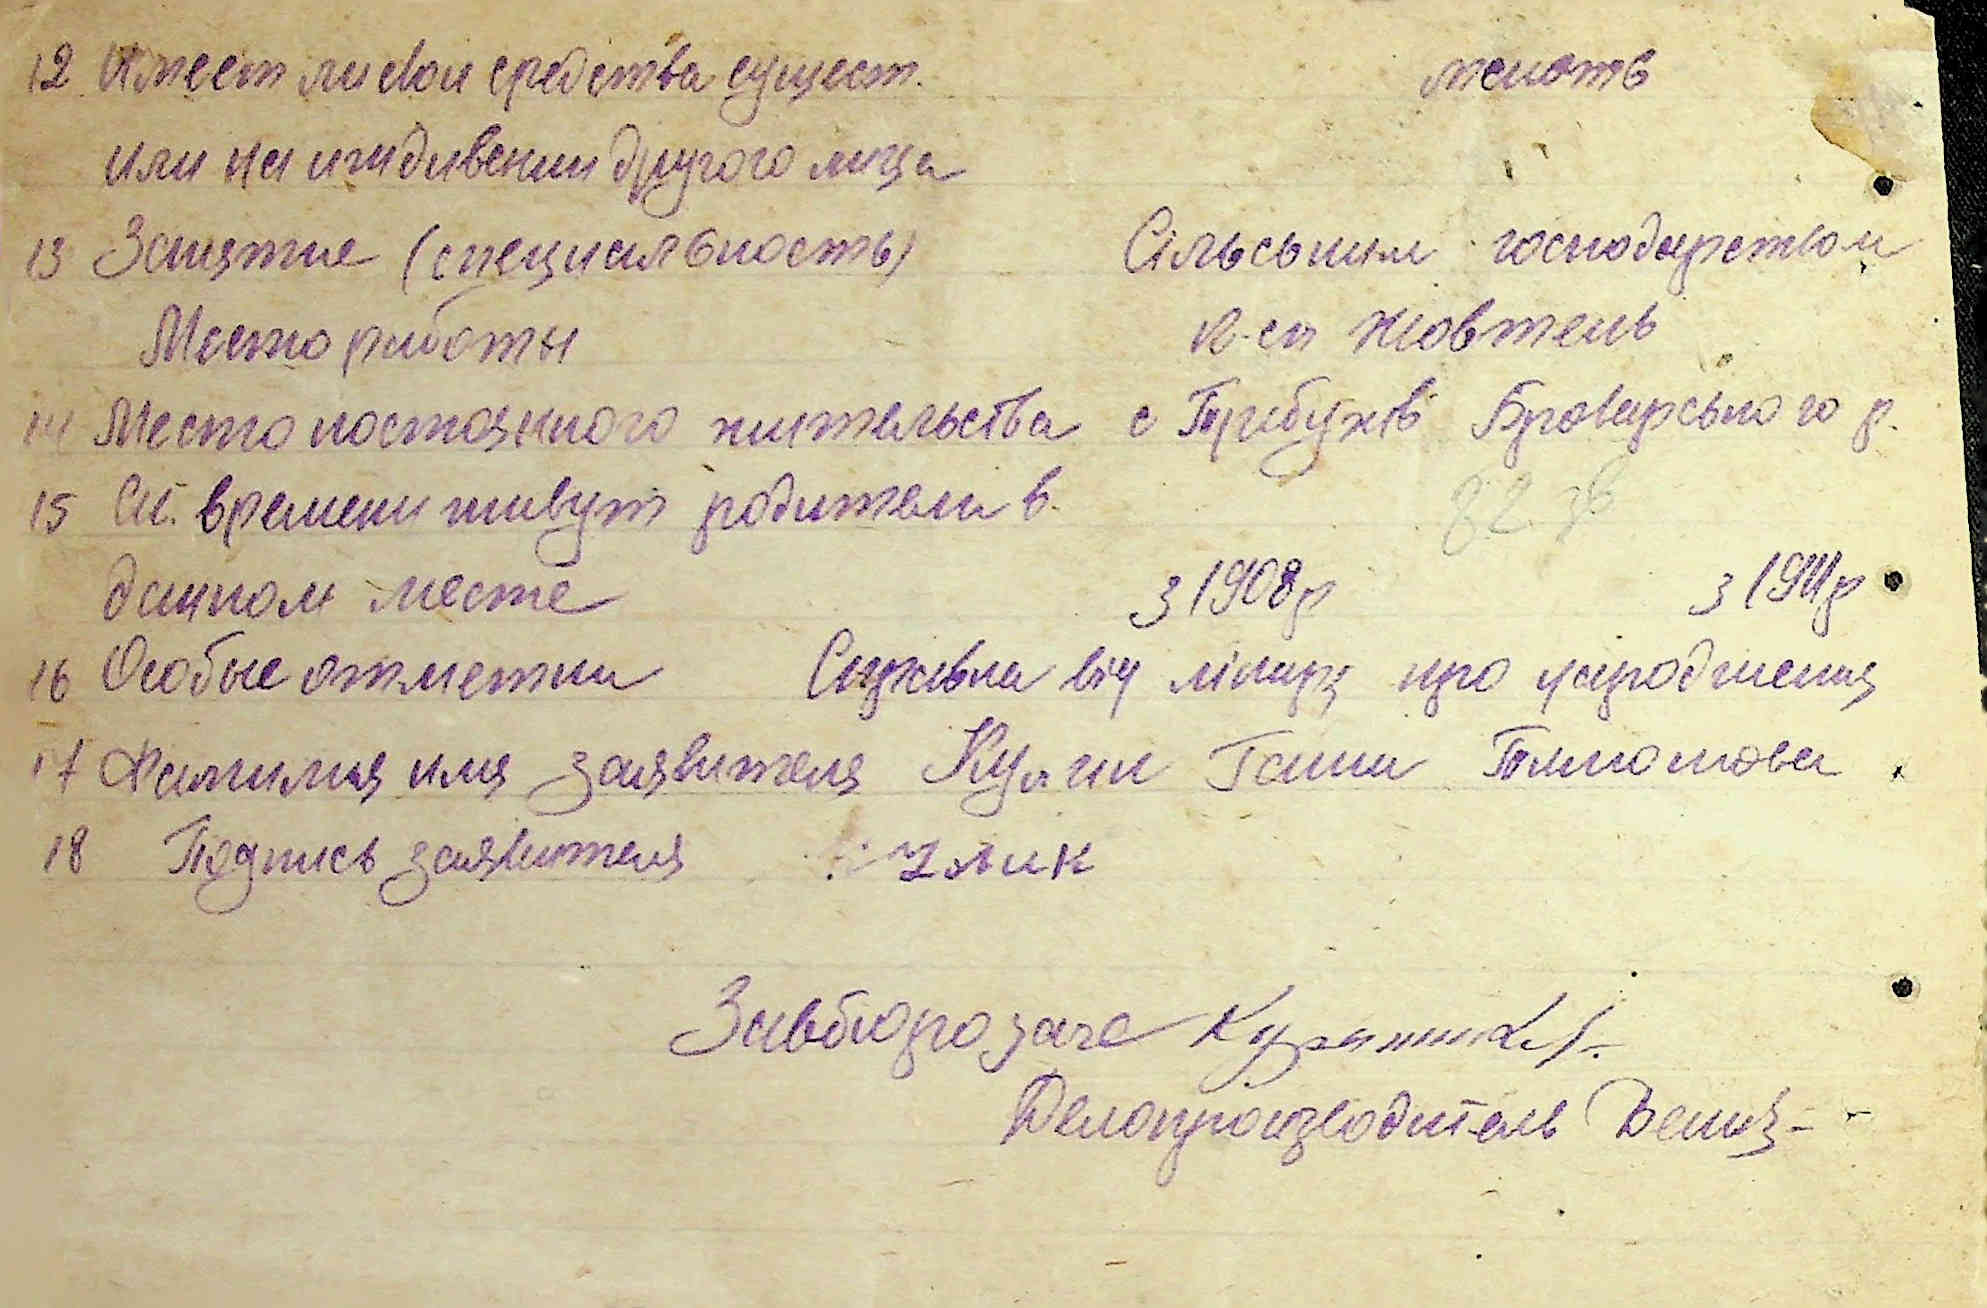 12 Имеет ли свои средства сущест. мають
или на иждивении другого лица
13 Занятие (специальность) Сільським господарством
Место работы к-сп Жовтень
14 Место постоянного жительства с Требухів Броварського р.
15 Ск. времени живут родители в
данном месте з 1908р з 1911р
16 Особые отметки від лікаря про народження
17 Фамилия имя заявителя Кулик Ганна
18 Подпись заявителя Кулик
Завбюро загс
Делопроизводитель